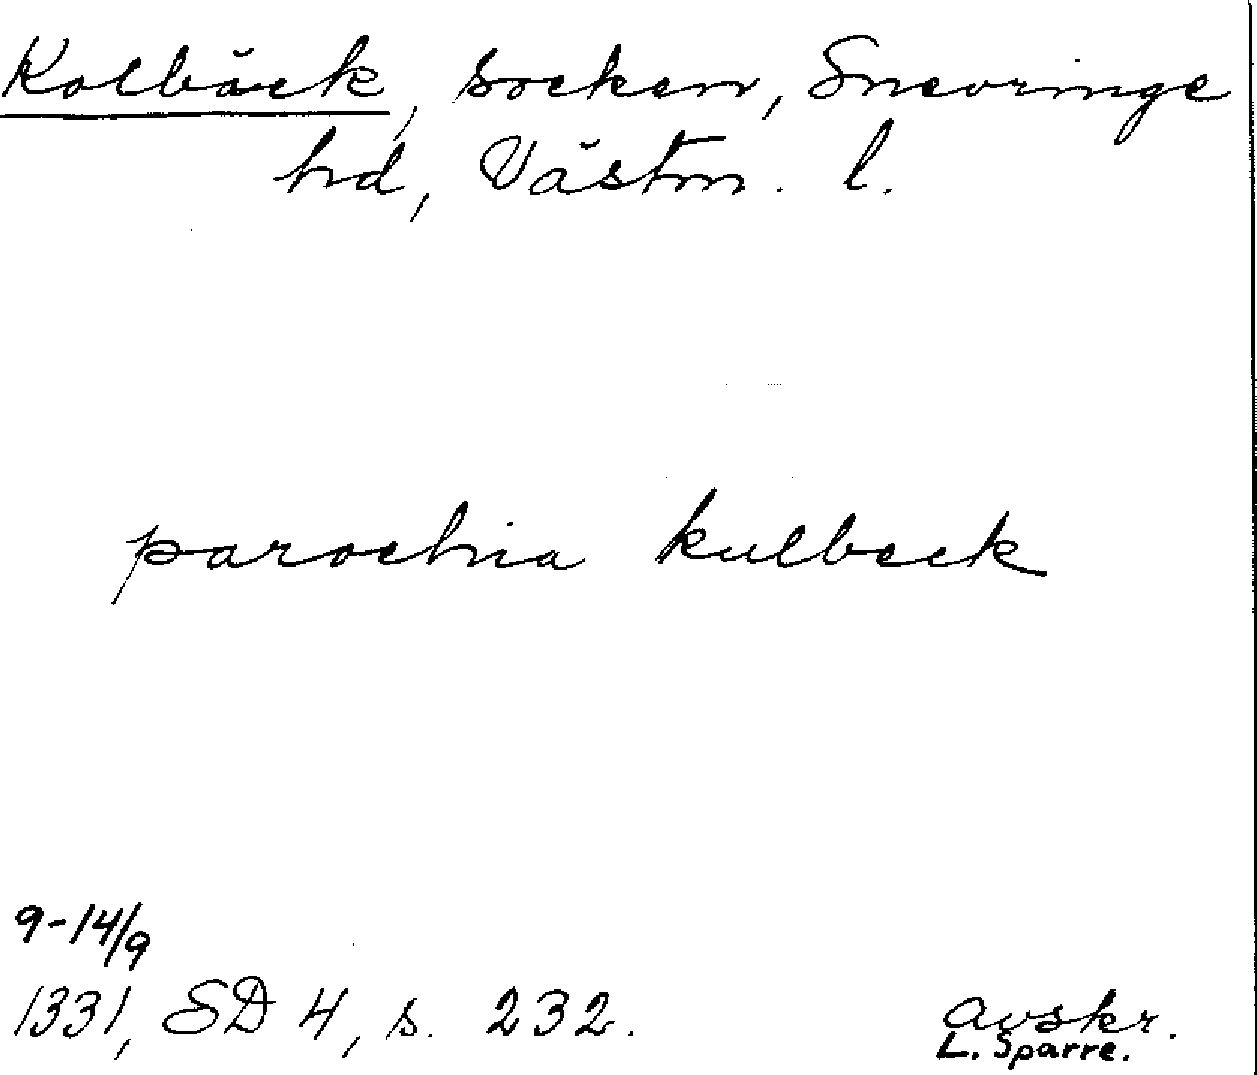 Kolbäck, socken, Snevringe
hd, Västm. l.
parochia kulbeck
9-14/9
1331, SD 4, s. 232.
Avskr.
L. Sparre.